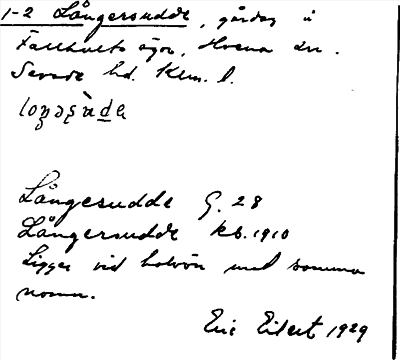 1-2 Långersudde, gårdar å
Fallhults ägor, Hvena sn.
Sevede hd. Klm. l.
Långesudde G. 28
Långersudde kb. 1910
Ligger vid halvön med samma
namn.
Eric Eilert 1929